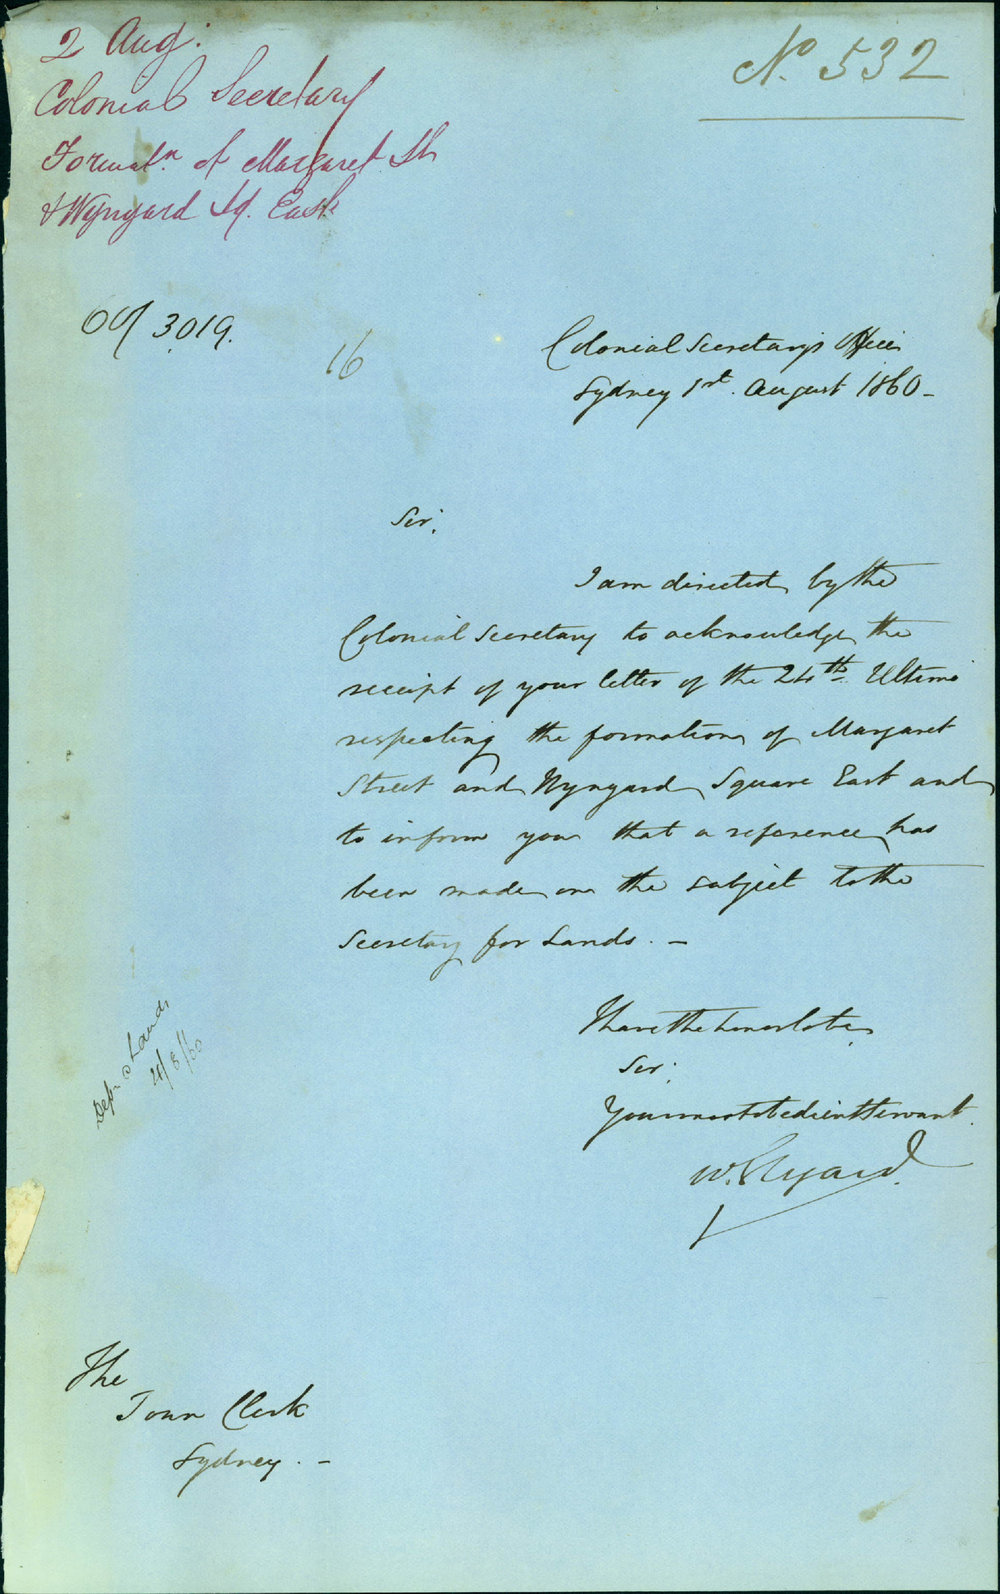 2 Aug:
Colonial Secretary
Formatn. of Margaret St
& Wynyard Sq. East
No. 532
60/3019.
16
Colonial Secretary's Office
Sydney 1st. August 1860 -
Sir,
I am directed by the
Colonial Secretary to acknowledge the
receipt of your letter of the 24th. Ultimo
respecting the formation of Margaret
Street and Wynyard Square East and
to inform you that a reference has
been made on the subject to the
Secretary for Lands. -
I have the honor to be,
Sir,
Your most obedient Servant.
W. Elyard.
Lands
/8/60
The
Town Clerk
Sydney. -